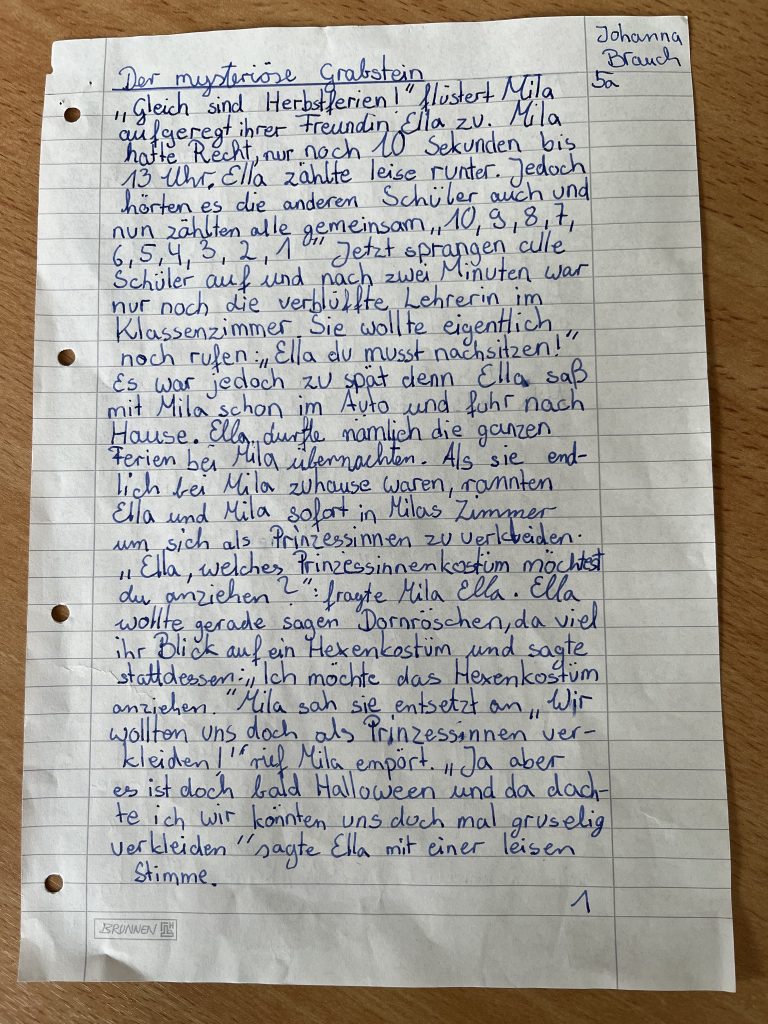 Johanna
Brauch
5a
Der mysteriöse Grabstein
„Gleich sind Herbstferien!" flüstert Mila
aufgeregt ihrer Freundin Ella zu. Mila
hatte Recht, nur noch 10 Sekunden bis
13 Uhr. Ella zählte leise runter. Jedoch
hörten es die anderen Schüler auch und
nun zählten alle gemeinsam „10, 9, 8, 7,
6, 5, 4, 3, 2, 1" Jetzt sprangen alle
Schüler auf und nach zwei Minuten war
nur noch die verblüffte Lehrerin im
Klassenzimmer. Sie wollte eigentlich
noch rufen: „Ella du musst nachsitzen!"
Es war jedoch zu spät denn Ella saß
mit Mila schon im Auto und fuhr nach
Hause. Ella durfte nämlich die ganzen
Ferien bei Mila übernachten. Als sie end-
lich bei Mila zuhause waren, rannten
Ella und Mila sofort in Milas Zimmer
um sich als Prinzessinnen zu verkleiden.
„Ella, welches Prinzessinnenkostüm möchtest
du anziehen?": fragte Mila Ella. Ella
wollte gerade sagen Dornröschen, da viel
ihr Blick auf ein Hexenkostüm und sagte
stattdessen: „Ich möchte das Hexenkostüm
anziehen." Mila sah sie entsetzt an „Wir
wollten uns doch als Prinzessinnen ver-
kleiden!" rief Mila empört. „Ja aber
es ist doch bald Halloween und da dach-
te ich wir könnten uns doch mal gruselig
verkleiden" sagte Ella mit einer leisen
Stimme.
1
BRUNNEN